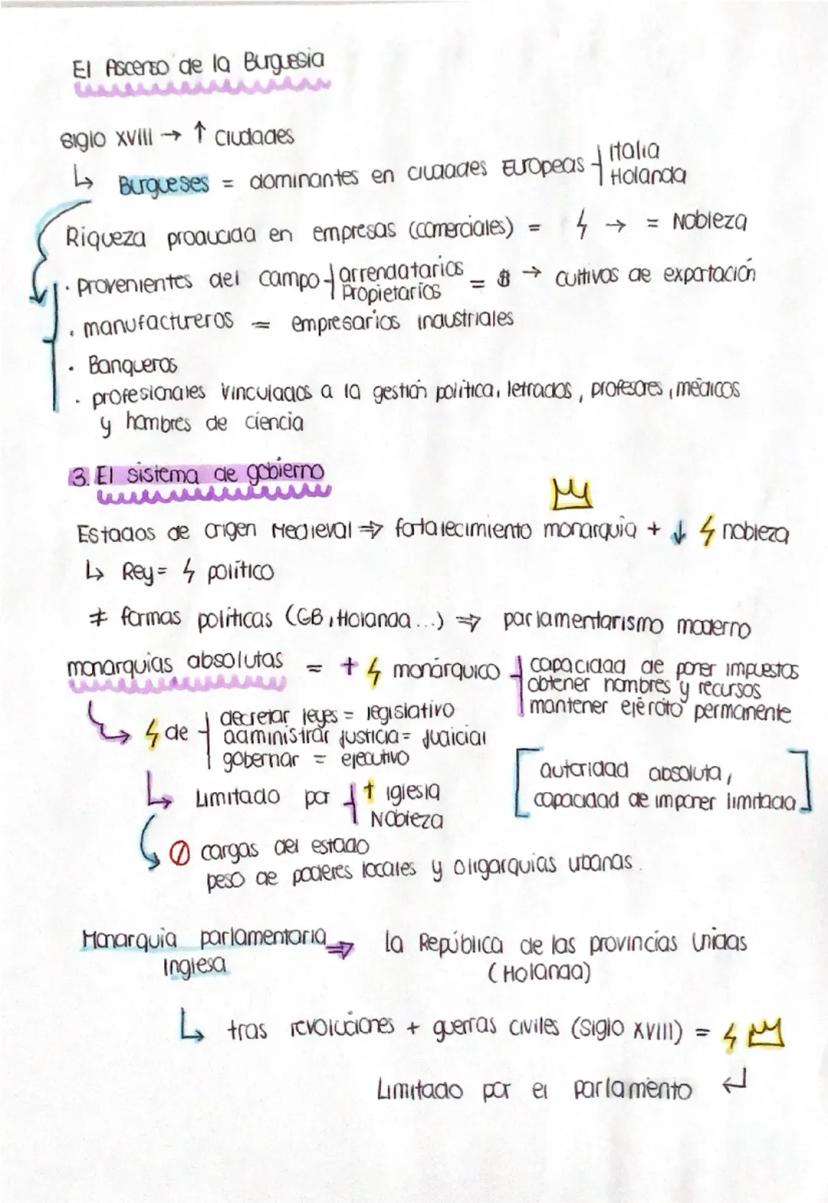 El Ascenso de la Burguesia
Siglo XVIII → ↑ Ciudades
↳ Burgueses = dominantes en ciudades Europeas Italia
Holanda
Riqueza producida en empresas (comerciales) = → = Nobleza
· Provenientes del campo arrendatarios = $ → cultivos de exportación
Propietarios
· manufactureros = empresarios industriales
· Banqueros
· profesionales vinculados a la gestión política, letrados, profesores, médicos
y hombres de ciencia
3. El sistema de gobierno
Estados de origen Medieval ⇒ fortalecimiento monarquia + ↓ nobleza
↳ Rey = político
≠ formas políticas (GB, Holanda...) ⇒ parlamentarismo moderno
monarquias absolutas = + monárquico capacidad de poner impuestos
obtener hombres y recursos
mantener ejército permanente
↳ de decretar leyes = legislativo
administrar justicia = Judicial
gobernar = ejecutivo
[autoridad absoluta,
capacidad de imponer limitada]
↳ Limitado por † iglesia
Nobleza
cargas del estado
peso de poderes locales y oligarquias urbanas.
Monarquia parlamentaria ⇒ la República de las provincias Unidas
Inglesa (Holanda)
↳ tras revoluciones + guerras civiles (Siglo XVIII) =
Limitado por el parlamento ↵